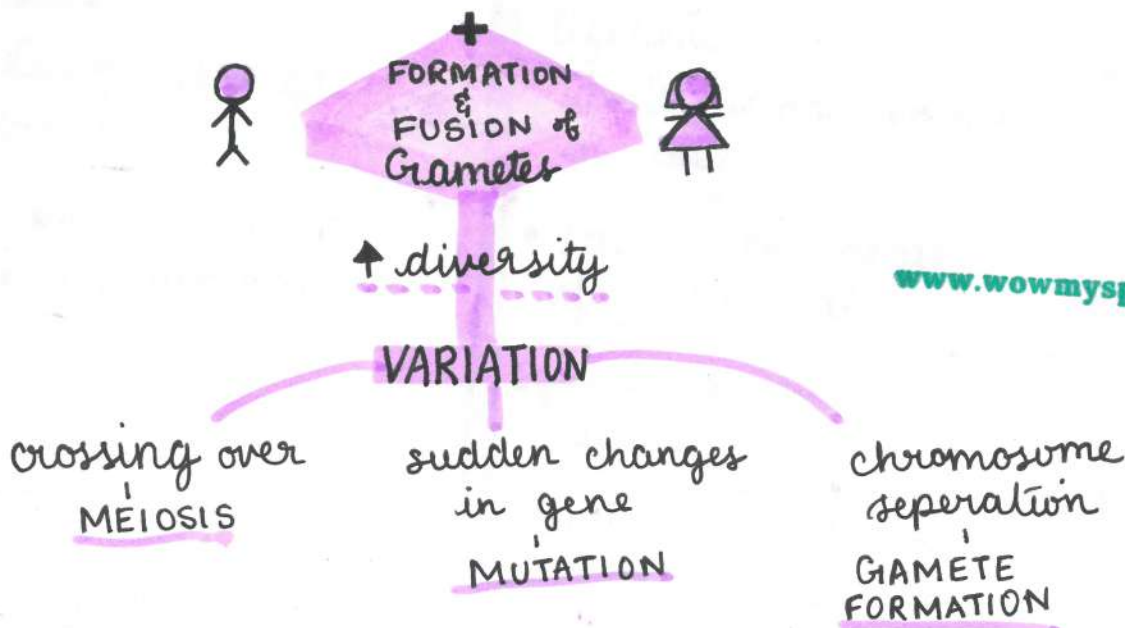 +
FORMATION
&
FUSION of
Gametes
↑ diversity
www.wowmysp
VARIATION
crossing over
MEIOSIS
sudden changes
in gene
MUTATION
chromosome
seperation
GAMETE
FORMATION